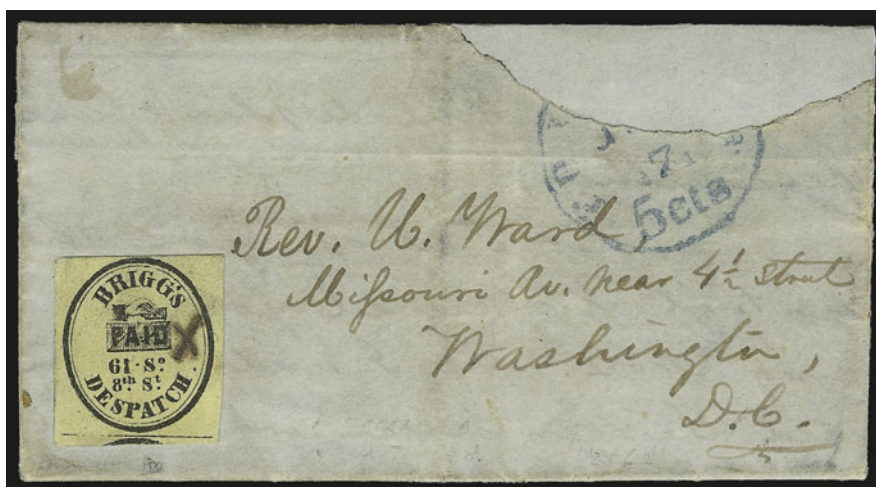 7
5cts
Rev. U. Ward,
Missouri Av. near 4½ street
Washington,
D.C.
BRIGG'S
PAID
X
61·So
8th St.
DESPATCH